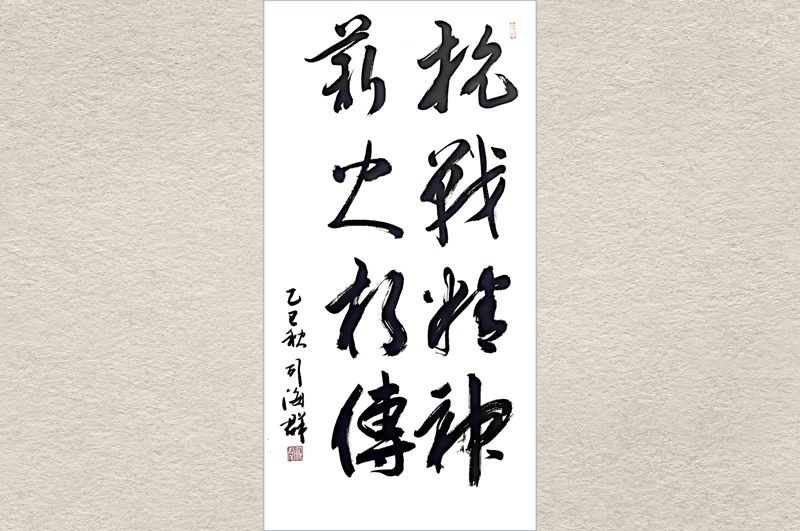 抗戰精神
薪火相傳
乙巳秋 司海群